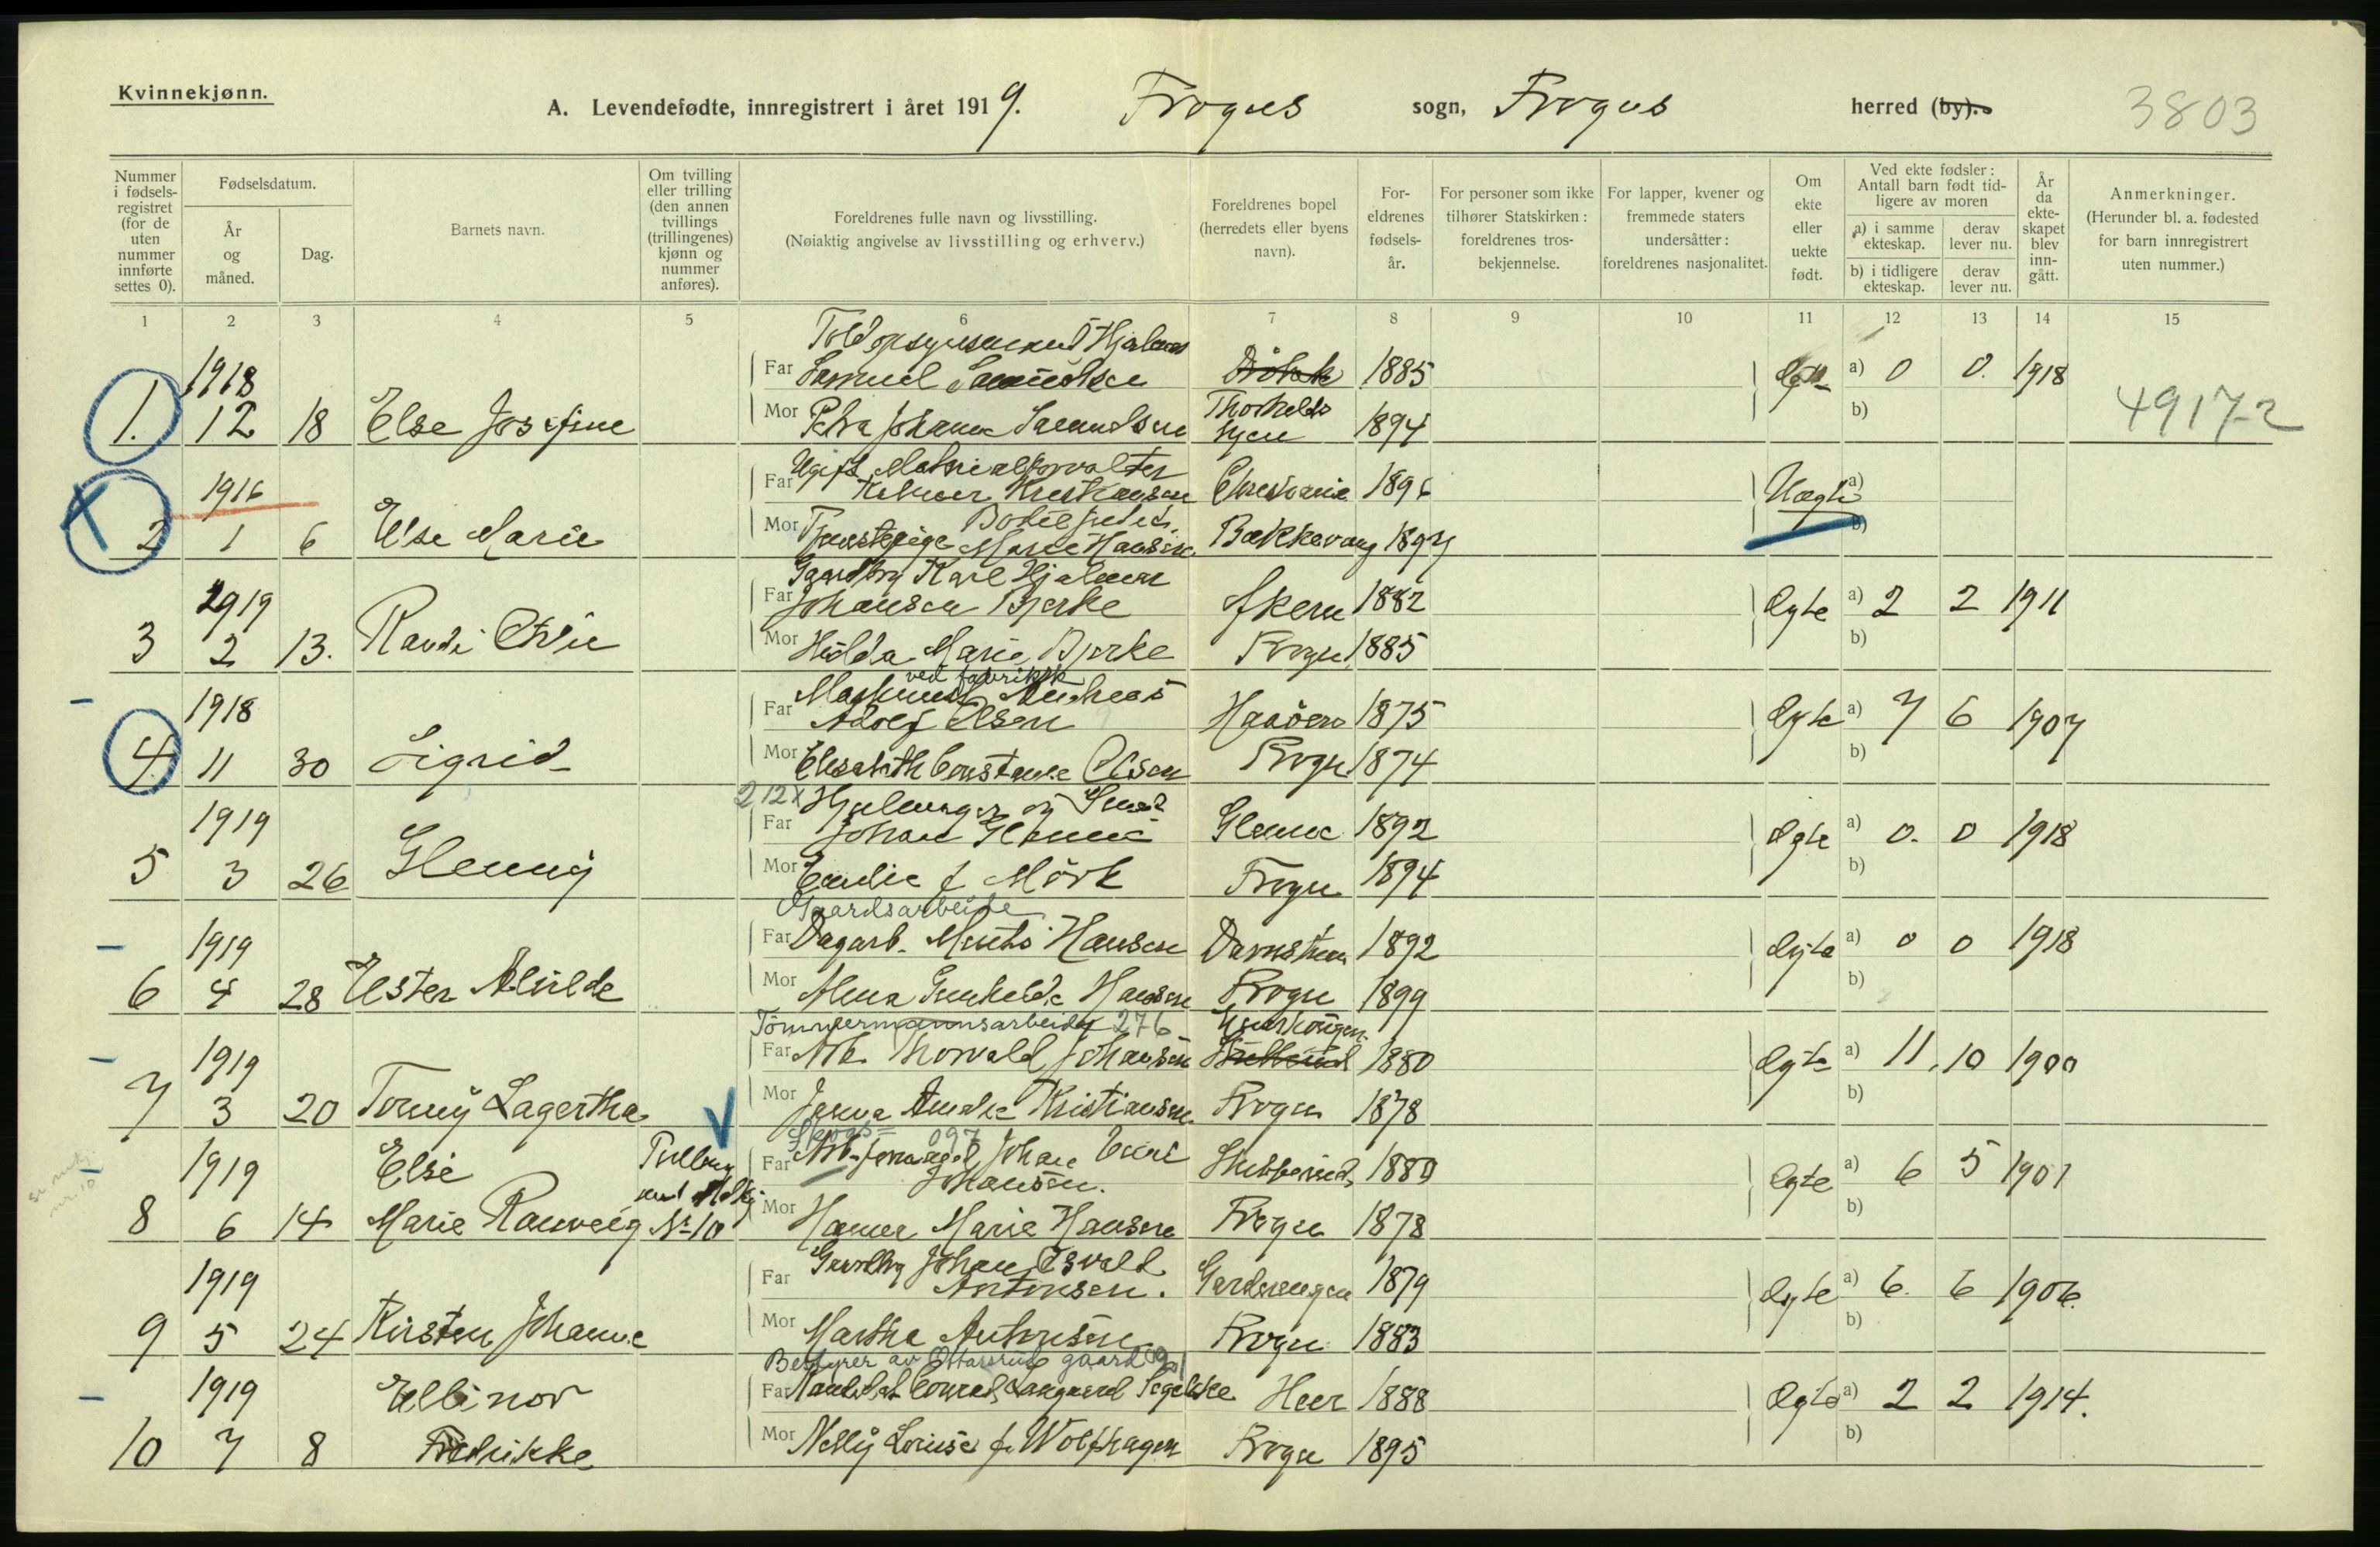 Kvinnekjønn.
A. Levendefødte, innregistrert i året 1919. Frogns sogn, Frogns herred (by). 3803
Nummer i fødsels-registret (for de uten nummer innførte settes 0).
Fødselsdatum.
År og måned.
Dag.
Barnets navn.
Om tvilling eller trilling (den annen tvillings (trillingenes) kjønn og nummer anføres).
Foreldrenes fulle navn og livsstilling.
(Nøiaktig angivelse av livsstilling og erhverv.)
Foreldrenes bopel (herredets eller byens navn).
For-eldrenes fødsels-år.
For personer som ikke tilhører Statskirken: foreldrenes tros-bekjennelse.
For lapper, kvener og fremmede staters undersåtter: foreldrenes nasjonalitet.
Om ekte eller uekte født.
Ved ekte fødsler: Antall barn født tid-ligere av moren
a) i samme ekteskap.
derav lever nu.
b) i tidligere ekteskap.
derav lever nu.
År da ekte-skapet blev inn-gått.
Anmerkninger.
(Herunder bl. a. fødested for barn innregistrert uten nummer.)
1 2 3 4 5 6 7 8 9 10 11 12 13 14 15
Hjalmar
1918 Far Samuel Samuelsen Drøbak 1885 Egte a) 0 0. 1918
1. 12 18 Else Josefine Mor Petra Johanne Samuelsen 1894 b) 49172
Ugift Materialforvalter
1916 Far Kristiansen Christiania 1896 Uægte a)
Bodil
2 1 6 Else Marie Mor Tjenestepige Marie Hansen Bakkevang 1897 b)
Gaardbr Karl Hjalmar
1919 Far Johansen Bjerke 1882 Egte a) 2 2 1911
3 2 13. Randi Mor Hilda Marie Bjerke Frogn 1885 b)
ved fabrikk
Maskinist Andreas
1918 Far Adolf Olsen Haaøen 1875 Egte a) 7 6 1907
4. 11 30 Sigrid Mor Elisabeth Constanse Olsen Frogn 1874 b)
212x Hjulmager og Smed
1919 Far Johan Glenne Glenne 1892 Egte a) 0. 0 1918
5 3 26 Glenny Mor Emilie f Mörk Frogn 1894 b)
Gaardsarbeide
1919 Far Dagarb. Hansen 1892 Egte a) 0 0 1918
6 4 28 Ester Alvilde Mor Alma Gunhilde Hansen Frogn 1899 b)
Tömmermannsarbeider 276
1919 Far Arb. Thorvald Johansen 1880 Egte a) 11. 10 1900
7 3 20 Tonny Lagertha Mor Amalie Kristiansen Frogn 1878 b)
Skogs= 097
1919 Else Tvilling Far Arb. Johan 1880 Egte a) 6 5 1901
Johansen.
8 6 14 Marie Ranveig No 10 Mor Hanna Marie Hansen Frogn 1878 b)
Gaardbr Johan Osvald
1919 Far Antonsen. Gardsengen 1879 Egte a) 6. 6 1906.
9 5 24 Kirsten Johanne Mor Martha Antonsen Frogn 1883 b)
Bestyrer av Ottarsrud gaard 091
1919 Ellinor Far Kandidat Conrad Langaard Segelcke Heer 1888 Egte a) 2 2 1914.
10 7 8 Fredrikke Mor Nelly Louise f. Wolfhagen Frogn 1895 b)